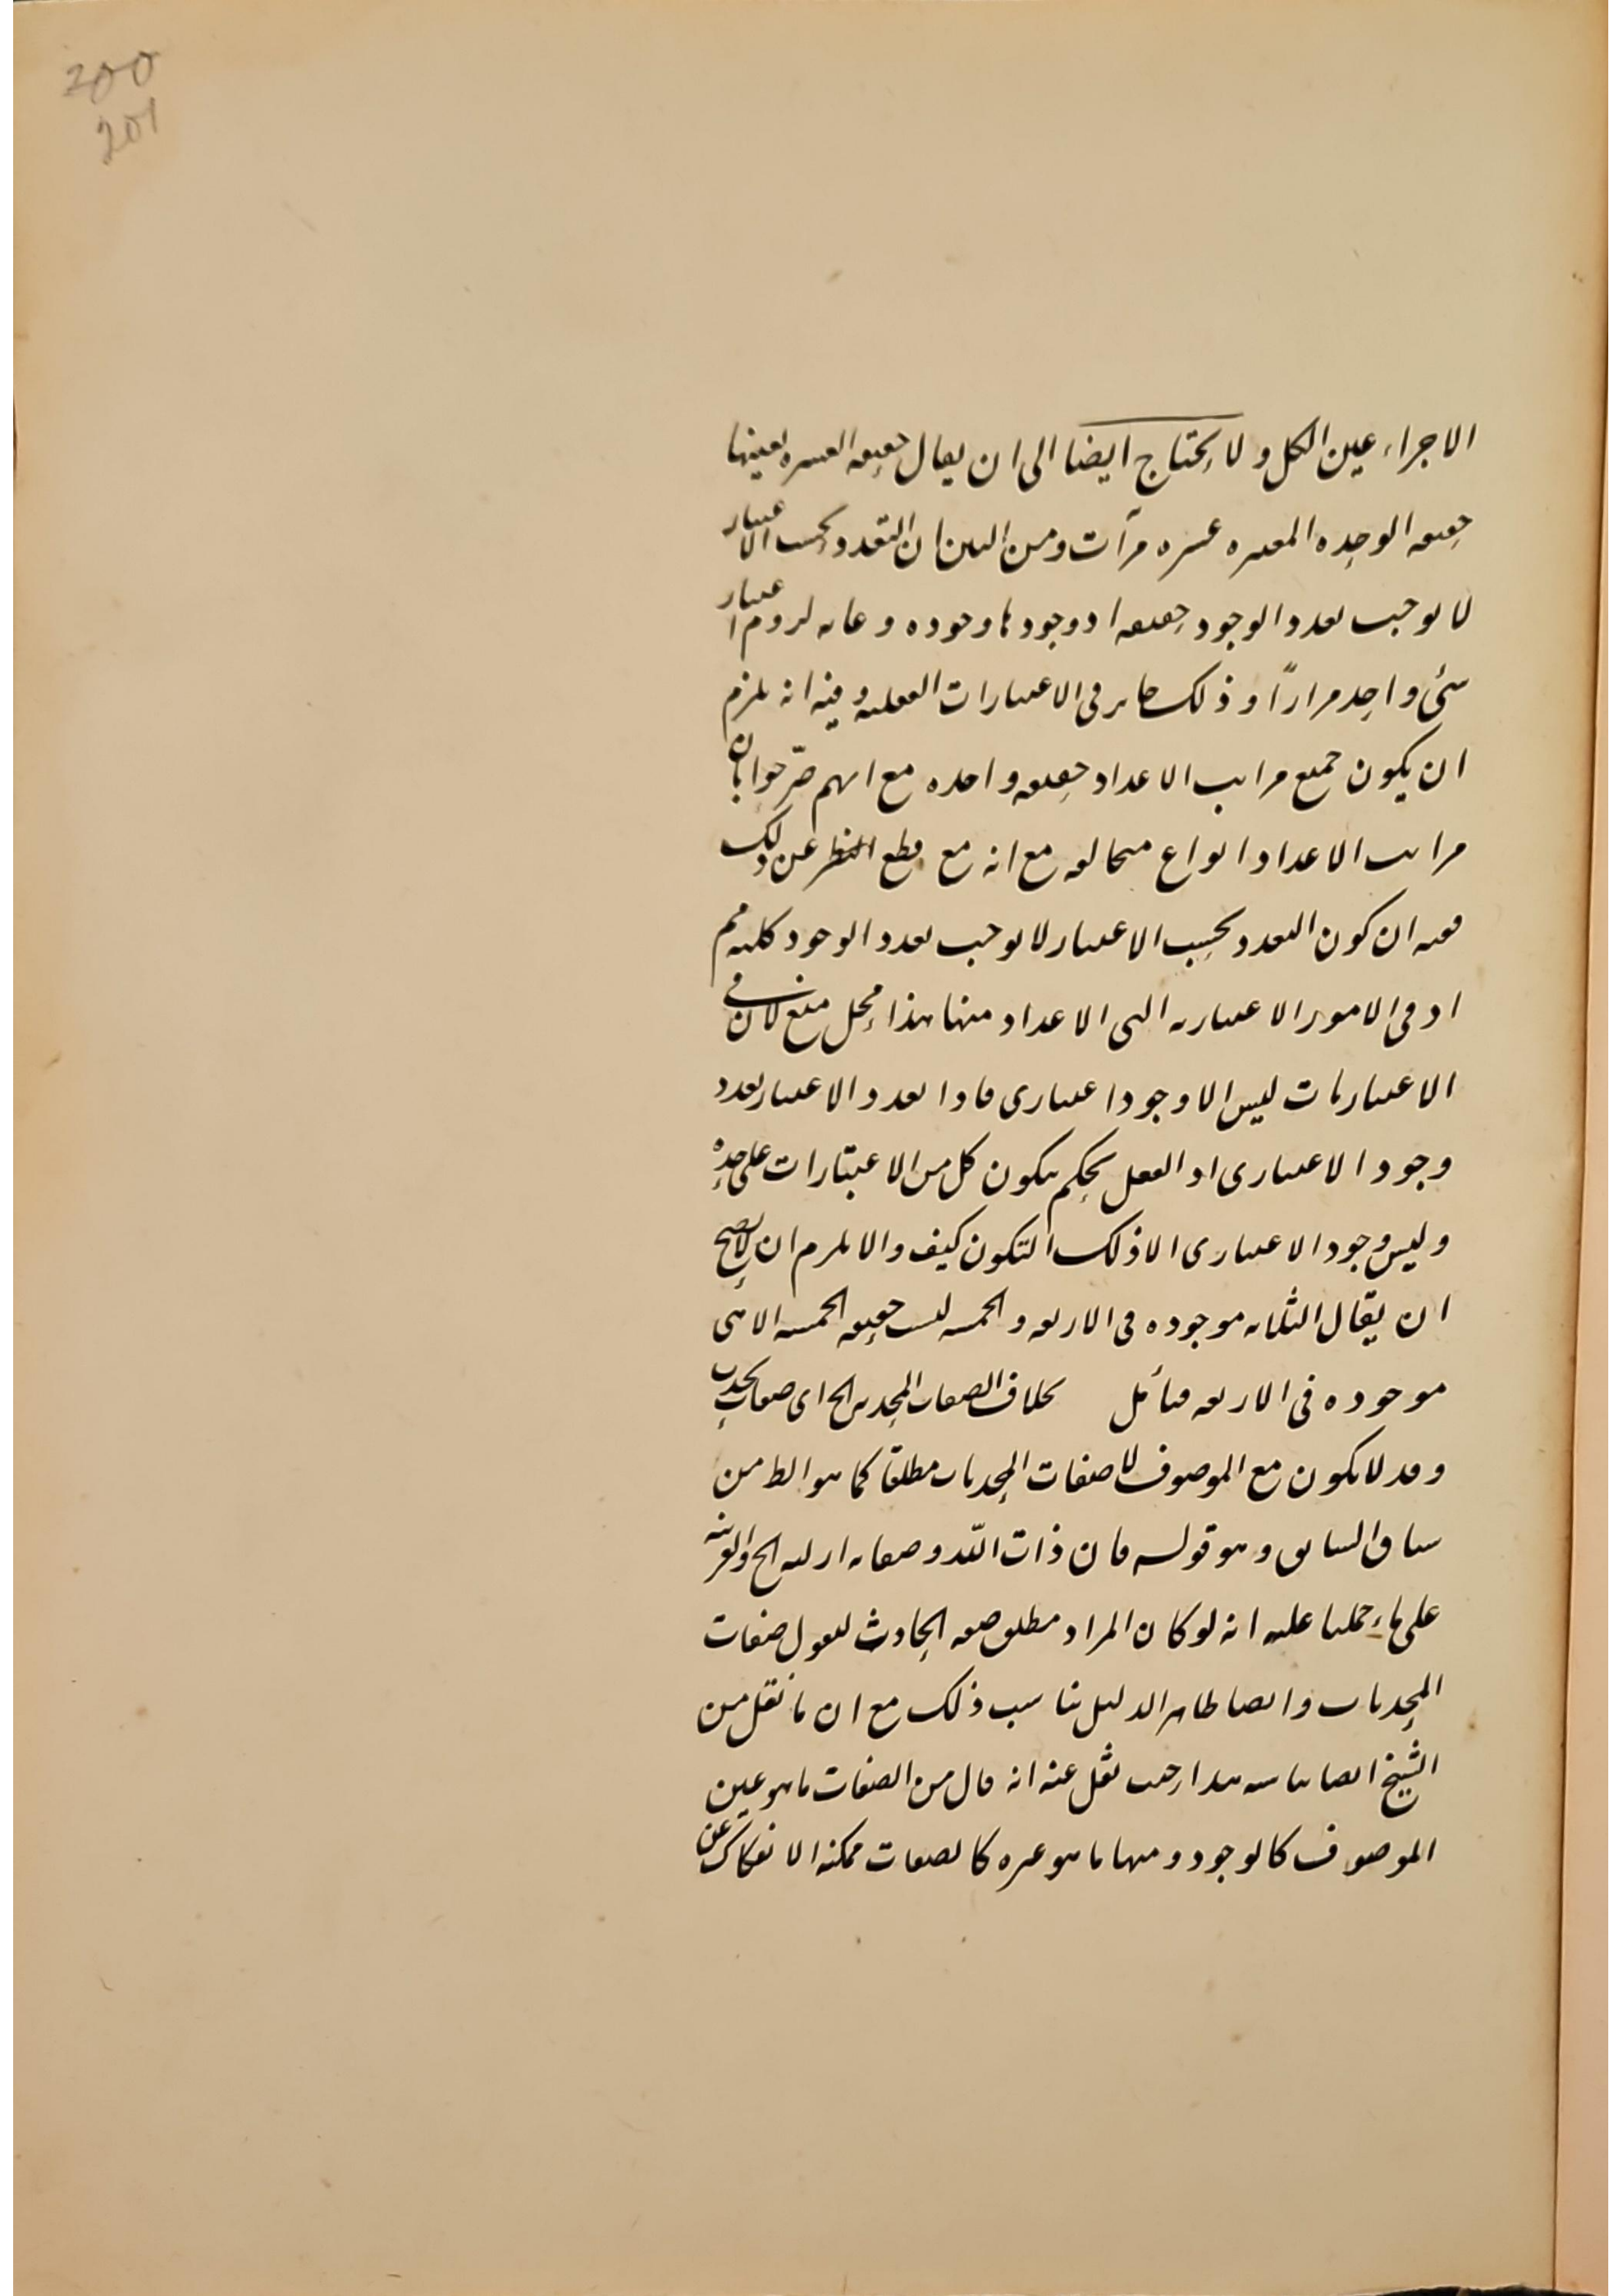 200
201
الاجزاء عين الكل ولا يحتاج ايضا الى ان يقال حقيقه العشره بعينها
حقيقه الوحده المعتبره عشره مرآت ومن البين ان التعدد بحسب الاعتبار
لا يوجب تعدد الوجود حقيقه اذ وجودها وجوده وغايه لزوم اعتبار
شئ واحد مراراً وذلك جايز فى الاعتبارات العقليه وفيه انه يلزم
ان يكون جميع مراتب الاعداد حقيقه واحده مع انهم صرّحوا بان
مراتب الاعداد انواع متخالفه مع انه مع قطع النظر عن ذلك
فيه ان كون التعدد بحسب الاعتبار لا يوجب تعدد الوجود كليه مم
اذ فى الامور الاعتباريه التى الاعداد منها هذا محل منع لان فى
الاعتباريات ليس الا وجود اعتبارى فاذا تعدد الاعتبار تعدد
وجود الاعتبارى اذ العقل يحكم بكون كل من الاعتبارات على حده
وليس وجود الاعتبارى الا ذلك التكون كيف والا يلزم ان لا يصح
ان يقال الثلثه موجوده فى الاربعه والخمسه ليست حقيقه الخمسه الا هى
موجوده فى الاربعه فتأمل بخلاف الصفات المحدثه الخ اى صفات تحدث
وقد لا يكون مع الموصوف لا صفات المحدثات مطلقا كما هو الظ من
سياق السابق وهو قوله فان ذات الله وصفاته ازليه الخ والقرينه
على ماء حملنا عليه انه لو كان المراد مطلق صفه الحادث ليقول صفات
المحدثات وايضا ظاهر الدليل يناسب ذلك مع ان ما نقل من
الشيخ ايضا يناسب هذا حيث نقل عنه انه قال من الصفات ما هو عين
الموصوف كالوجود ومنها ما هو غيره كالصفات ممكنه الانفكاك عن